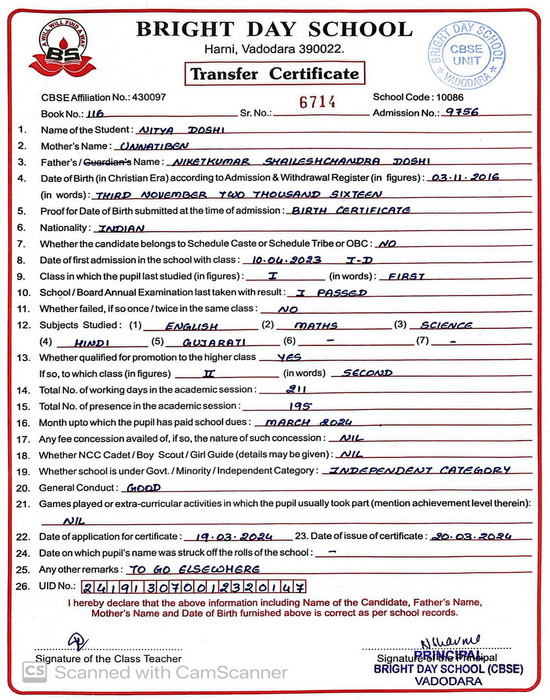 A WILL WILL FIND A WAY
BS
BRIGHT DAY SCHOOL
Harni, Vadodara 390022.
Transfer Certificate
BRIGHT DAY SCHOOL
CBSE
UNIT
VADODARA
CBSE Affiliation No.: 430097
6714
School Code : 10086
Book No.: 116
Sr. No.:
Admission No.: 9756
1. Name of the Student : NITYA DOSHI
2. Mother's Name : UNNATIBEN
3. Father's / Guardian's Name : NIKETKUMAR SHAILESHCHANDRA DOSHI
4. Date of Birth (in Christian Era) according to Admission & Withdrawal Register (in figures) : 03-11-2016
(in words) : THIRD NOVEMBER TWO THOUSAND SIXTEEN
5. Proof for Date of Birth submitted at the time of admission : BIRTH CERTIFICATE
6. Nationality : INDIAN
7. Whether the candidate belongs to Schedule Caste or Schedule Tribe or OBC : NO
8. Date of first admission in the school with class : 10.04.2023 I-D
9. Class in which the pupil last studied (in figures) : I (in words) : FIRST
10. School / Board Annual Examination last taken with result : I PASSED
11. Whether failed, if so once / twice in the same class : NO
12. Subjects Studied : (1) ENGLISH (2) MATHS (3) SCIENCE
(4) HINDI (5) GUJARATI (6) - (7) -
13. Whether qualified for promotion to the higher class YES
If so, to which class (in figures) II (in words) SECOND
14. Total No. of working days in the academic session : 211
15. Total No. of presence in the academic session : 195
16. Month upto which the pupil has paid school dues : MARCH 2024
17. Any fee concession availed of, if so, the nature of such concession : NIL
18. Whether NCC Cadet / Boy Scout / Girl Guide (details may be given) : NIL
19. Whether school is under Govt. / Minority / Independent Category : INDEPENDENT CATEGORY
20. General Conduct : GOOD
21. Games played or extra-curricular activities in which the pupil usually took part (mention achievement level therein):
NIL
22. Date of application for certificate : 19.03.2024 23. Date of issue of certificate : 20.03.2024
24. Date on which pupil's name was struck off the rolls of the school : -
25. Any other remarks : TO GO ELSEWHERE
26. UID No.: 241913070012320147
I hereby declare that the above information including Name of the Candidate, Father's Name,
Mother's Name and Date of Birth furnished above is correct as per school records.
Signature of the Class Teacher
Signature of the Principal
PRINCIPAL
BRIGHT DAY SCHOOL (CBSE)
VADODARA
CS Scanned with CamScanner